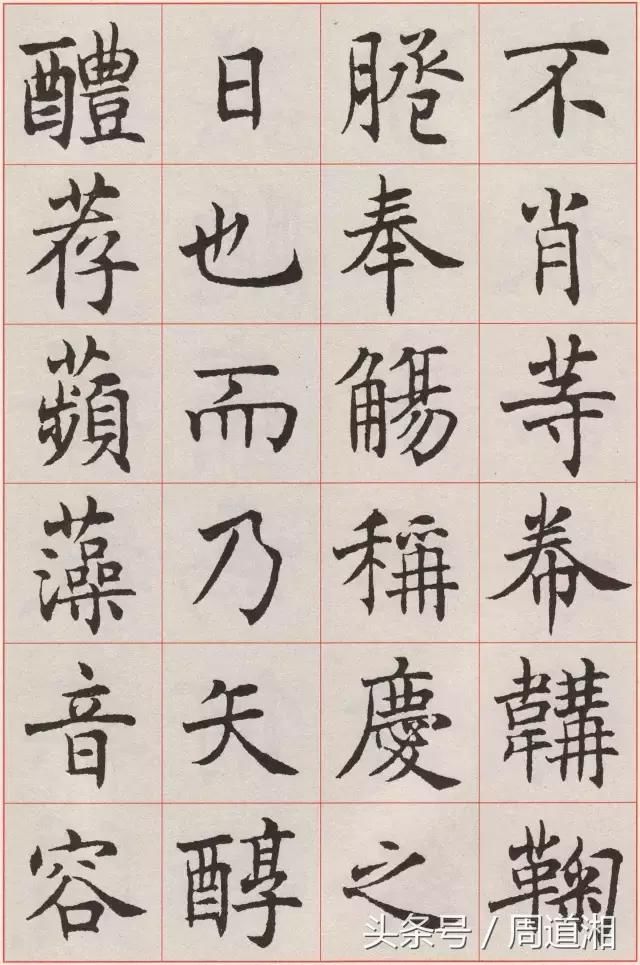 不肖等帣韝鞠
奉觴稱慶之
日也而乃矢醇
醴荐蘋藻音容
头条号 / 周道湘